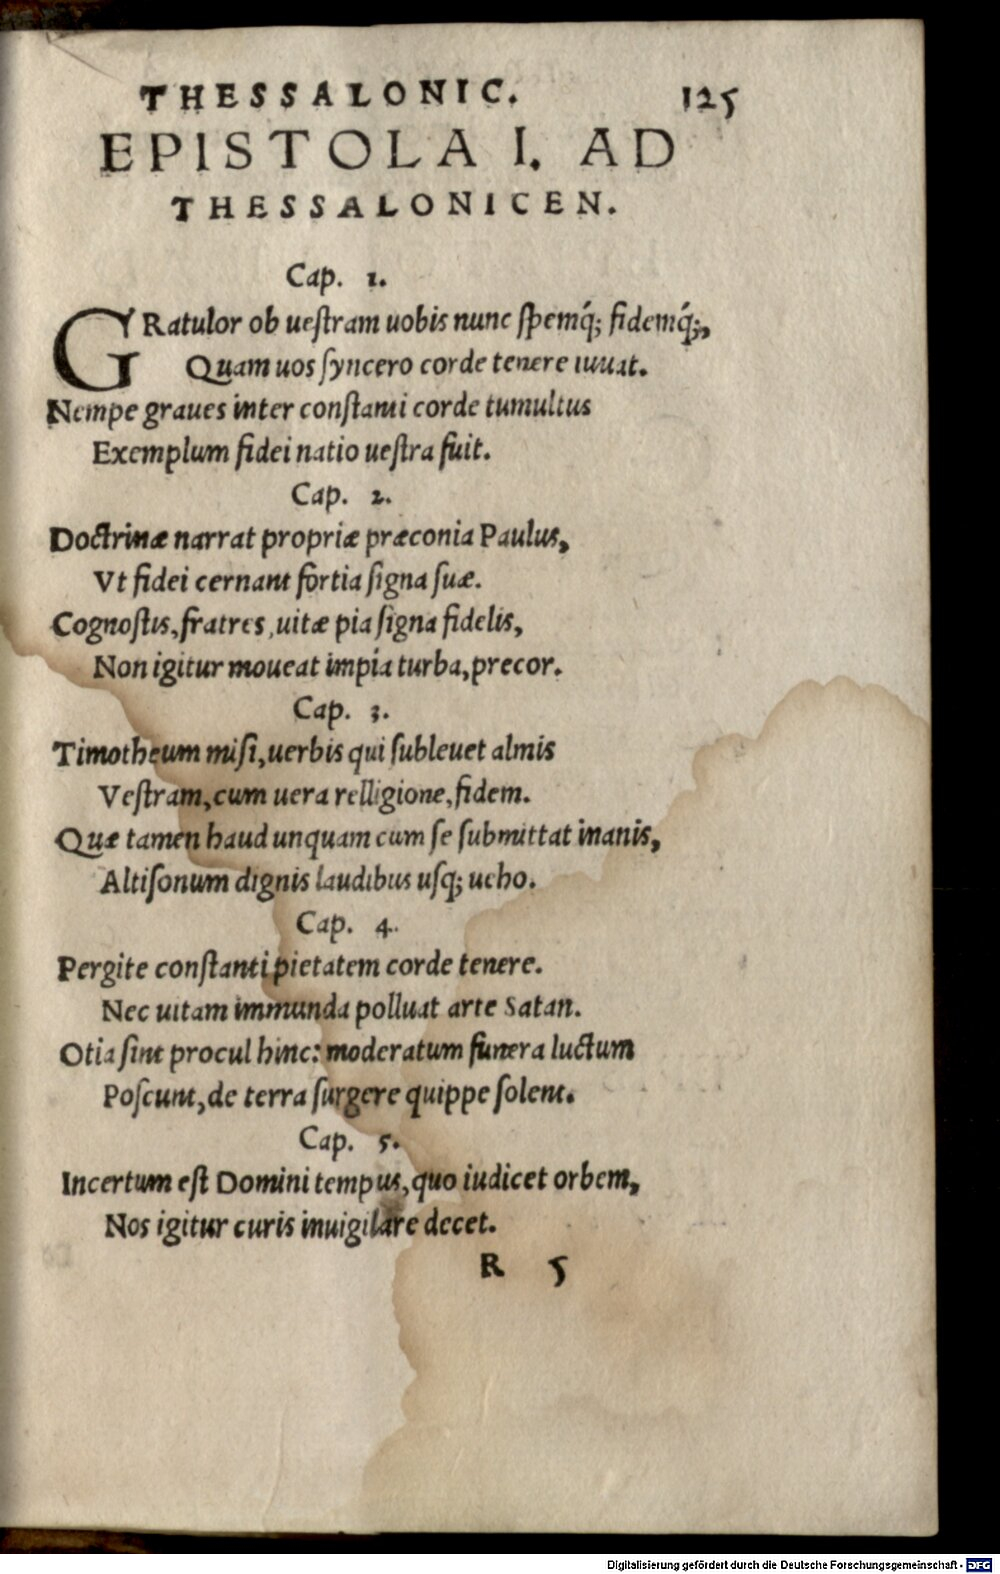 THESSALONIC. 125
EPISTOLA I. AD
THESSALONICEN.
Cap. 1.
GRatulor ob ueſtram uobis nunc ſpemq́; fidemq́;,
Quam uos ſyncero corde tenere iuuat.
Nempe graues inter conſtanti corde tumultus
Exemplum fidei natio ueſtra fuit.
Cap. 2.
Doctrinæ narrat propriæ præconia Paulus,
Vt fidei cernant fortia ſigna ſuæ.
Cognoſtis, fratres, uitæ pia ſigna fidelis,
Non igitur moueat impia turba, precor.
Cap. 3.
Timotheum miſi, uerbis qui ſubleuet almis
Veſtram, cum uera relligione, fidem.
Quæ tamen haud unquam cum ſe ſubmittat inanis,
Altiſonum dignis laudibus uſq; ueho.
Cap. 4.
Pergite conſtanti pietatem corde tenere.
Nec uitam immunda polluat arte Satan.
Otia ſint procul hinc: moderatum funera luctum
Poſcunt, de terra ſurgere quippe ſolent.
Cap. 5.
Incertum eſt Domini tempus, quo iudicet orbem,
Nos igitur curis inuigilare decet.
R 5
Digitalisierung gefördert durch die Deutsche Forschungsgemeinschaft - DFG